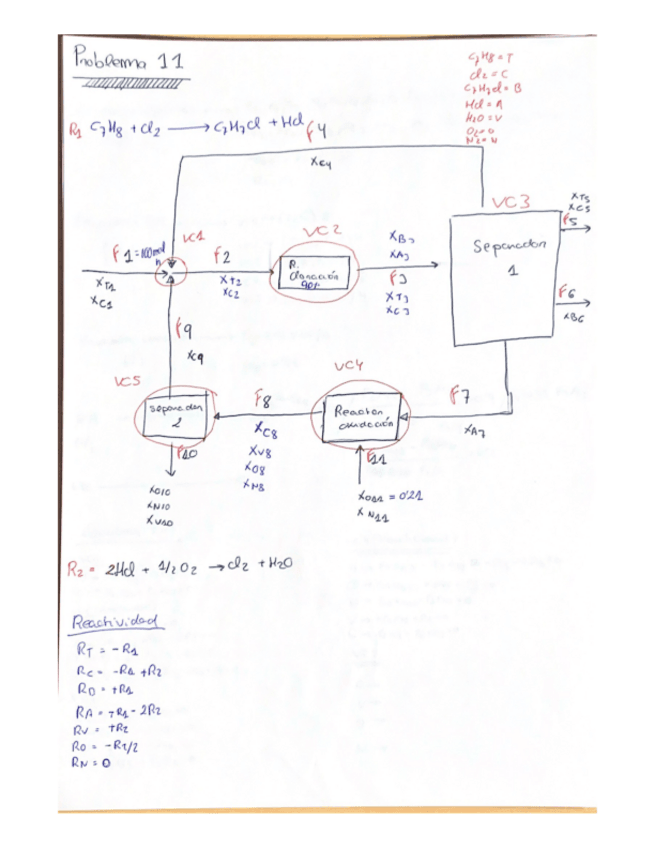 Problema 11
C7H8 = T
Cl2 = C
C7H7Cl = B
Hcl = A
H2O = V
O2 = O
N2 = N
R1 C7H8 + Cl2 → C7H7Cl + Hcl
F4
XC4
VC1
F1 = 100 mol/h
XT1
XC1
F2
XT2
XC2
VC2
R. Cloración
90%
XB3
XA3
F3
XT3
XC3
VC3
Separador
1
XT5
XC5
F5
F6
XB6
F9
XC9
VC5
Separador
2
F8
XC8
XV8
XO8
XN8
VC4
Reactor
oxidación
F7
XA7
F10
XO10
XN10
XV10
F11
XO11 = 0'21
XN11
R2 = 2Hcl + 1/2 O2 → Cl2 + H2O
Reactividad
RT = -R1
RC = -R1 + R2
RB = +R1
RA = +R1 - 2R2
RV = +R2
RO = -R2/2
RN = 0